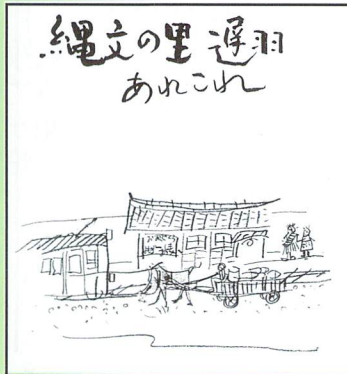 縄文の里 遅羽
あれこれ